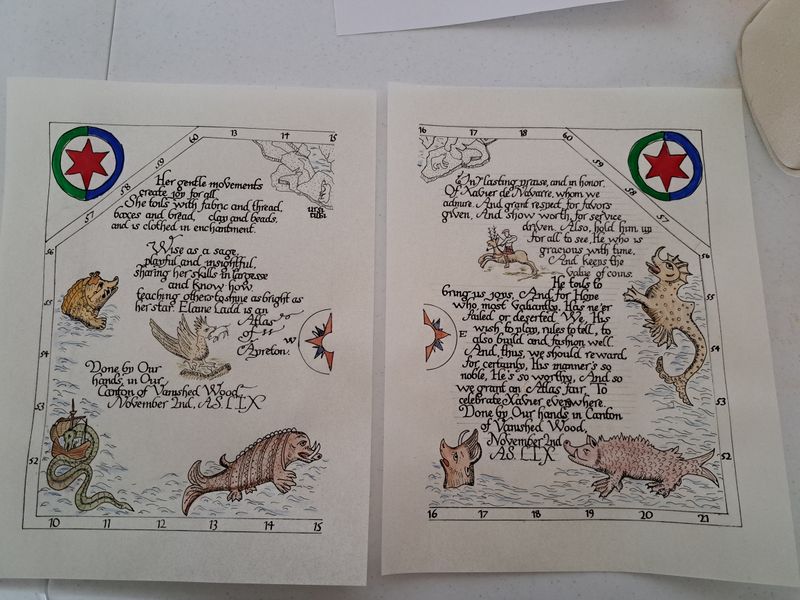 60 13 14 15
59
58
57
56
55
54
53
52
10 11 12 13 14 15
Her gentle movements
create joy for all.
She toils with fabric and thread,
boxes and bread, clay and beads,
and is clothed in enchantment.
Wise as a sage,
playful and insightful,
sharing her skills in largesse
and know how
teaching others to shine as bright as
her star. Elaine Ladd is an
Atlas
of
Ayreton.
W
Done by Our
hands, in Our
Canton of Vanished Wood,
November 2nd, A.S. LIX
16 17 18 60
59
58
57
56
55
54
53
52
16 17 18 19 20 21
In lasting praise, and in honor
Of Xavier de Navarre, whom we
admire. And grant respect for favors
given. And show worth for service
driven. Also, hold him up
for all to see, He who is
gracious with time,
And keeps the
value of coins.
He toils to
bring us joys. And for Hope
who, most valiantly, Has ne'er
failed or deserted. We, His
wish to play, rules to tell, to
also build and fashion well.
And, thus, we should reward
for certainty, His manner's so
noble, He's so worthy, And so
we grant an Atlas fair, To
celebrate Xavier everywhere.
E
Done by Our hands in Canton
of Vanished Wood,
November 2nd
A.S. LIX